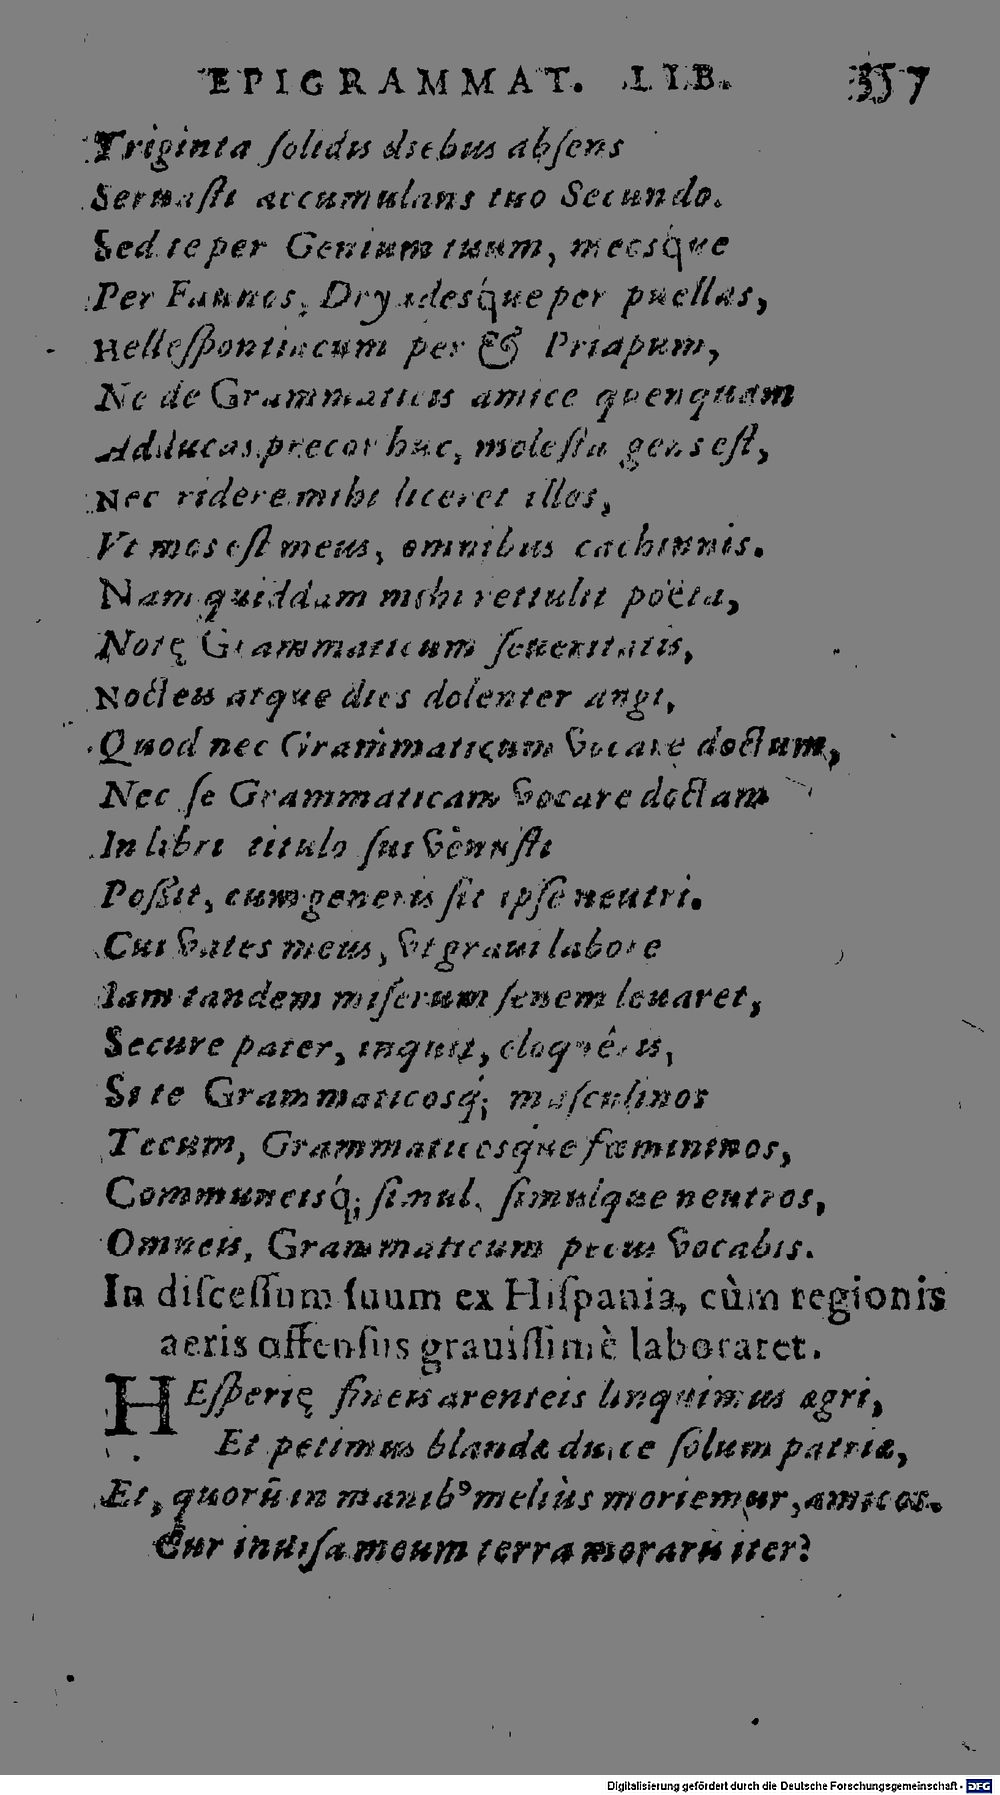 EPIGRAMMAT. LIB. 357
Triginta ſolidis diebus abſens
Seruaſti accumulans tuo Secundo.
Sed te per Genium tuum, meosq́ue
Per Faunos, Dryadesq́ue per puellas,
Helleſpontiacum per & Priapum,
Ne de Grammaticis amice quenquam
Adducas precor huc, moleſta gens eſt,
Nec ridere mihi liceret illos,
Vt mos eſt meus, omnibus cachinnis.
Nam quiddam mihi rettulit poëta,
Notę Grammaticum ſeueritatis,
Nocteis atque dies dolenter angi,
Quod nec Grammaticum vocare doctum,
Nec ſe Grammaticam vocare doctam
In libri titulo ſui venuſti
Poſsit, cum generis ſit ipſe neutri.
Cui vates meus, vt graui labore
Iam tandem miſerum ſenem leuaret,
Secure pater, inquit, eloquêris,
Si te Grammaticosq́; maſculinos
Tecum, Grammaticosq́ue fœmininos,
Communeisq́; ſimul, ſimulque neutros,
Omneis, Grammaticum pecus vocabis.
In diſceſſum ſuum ex Hiſpania, cùm regionis
aeris offenſus grauiſſimè laboraret.
HEſperię fineis arenteis linquimus agri,
Et petimus blandæ dulce ſolum patriæ,
Et, quorū in manibꝰ meliùs moriemur, amicos.
Cur inuiſa meum terra moraris iter?